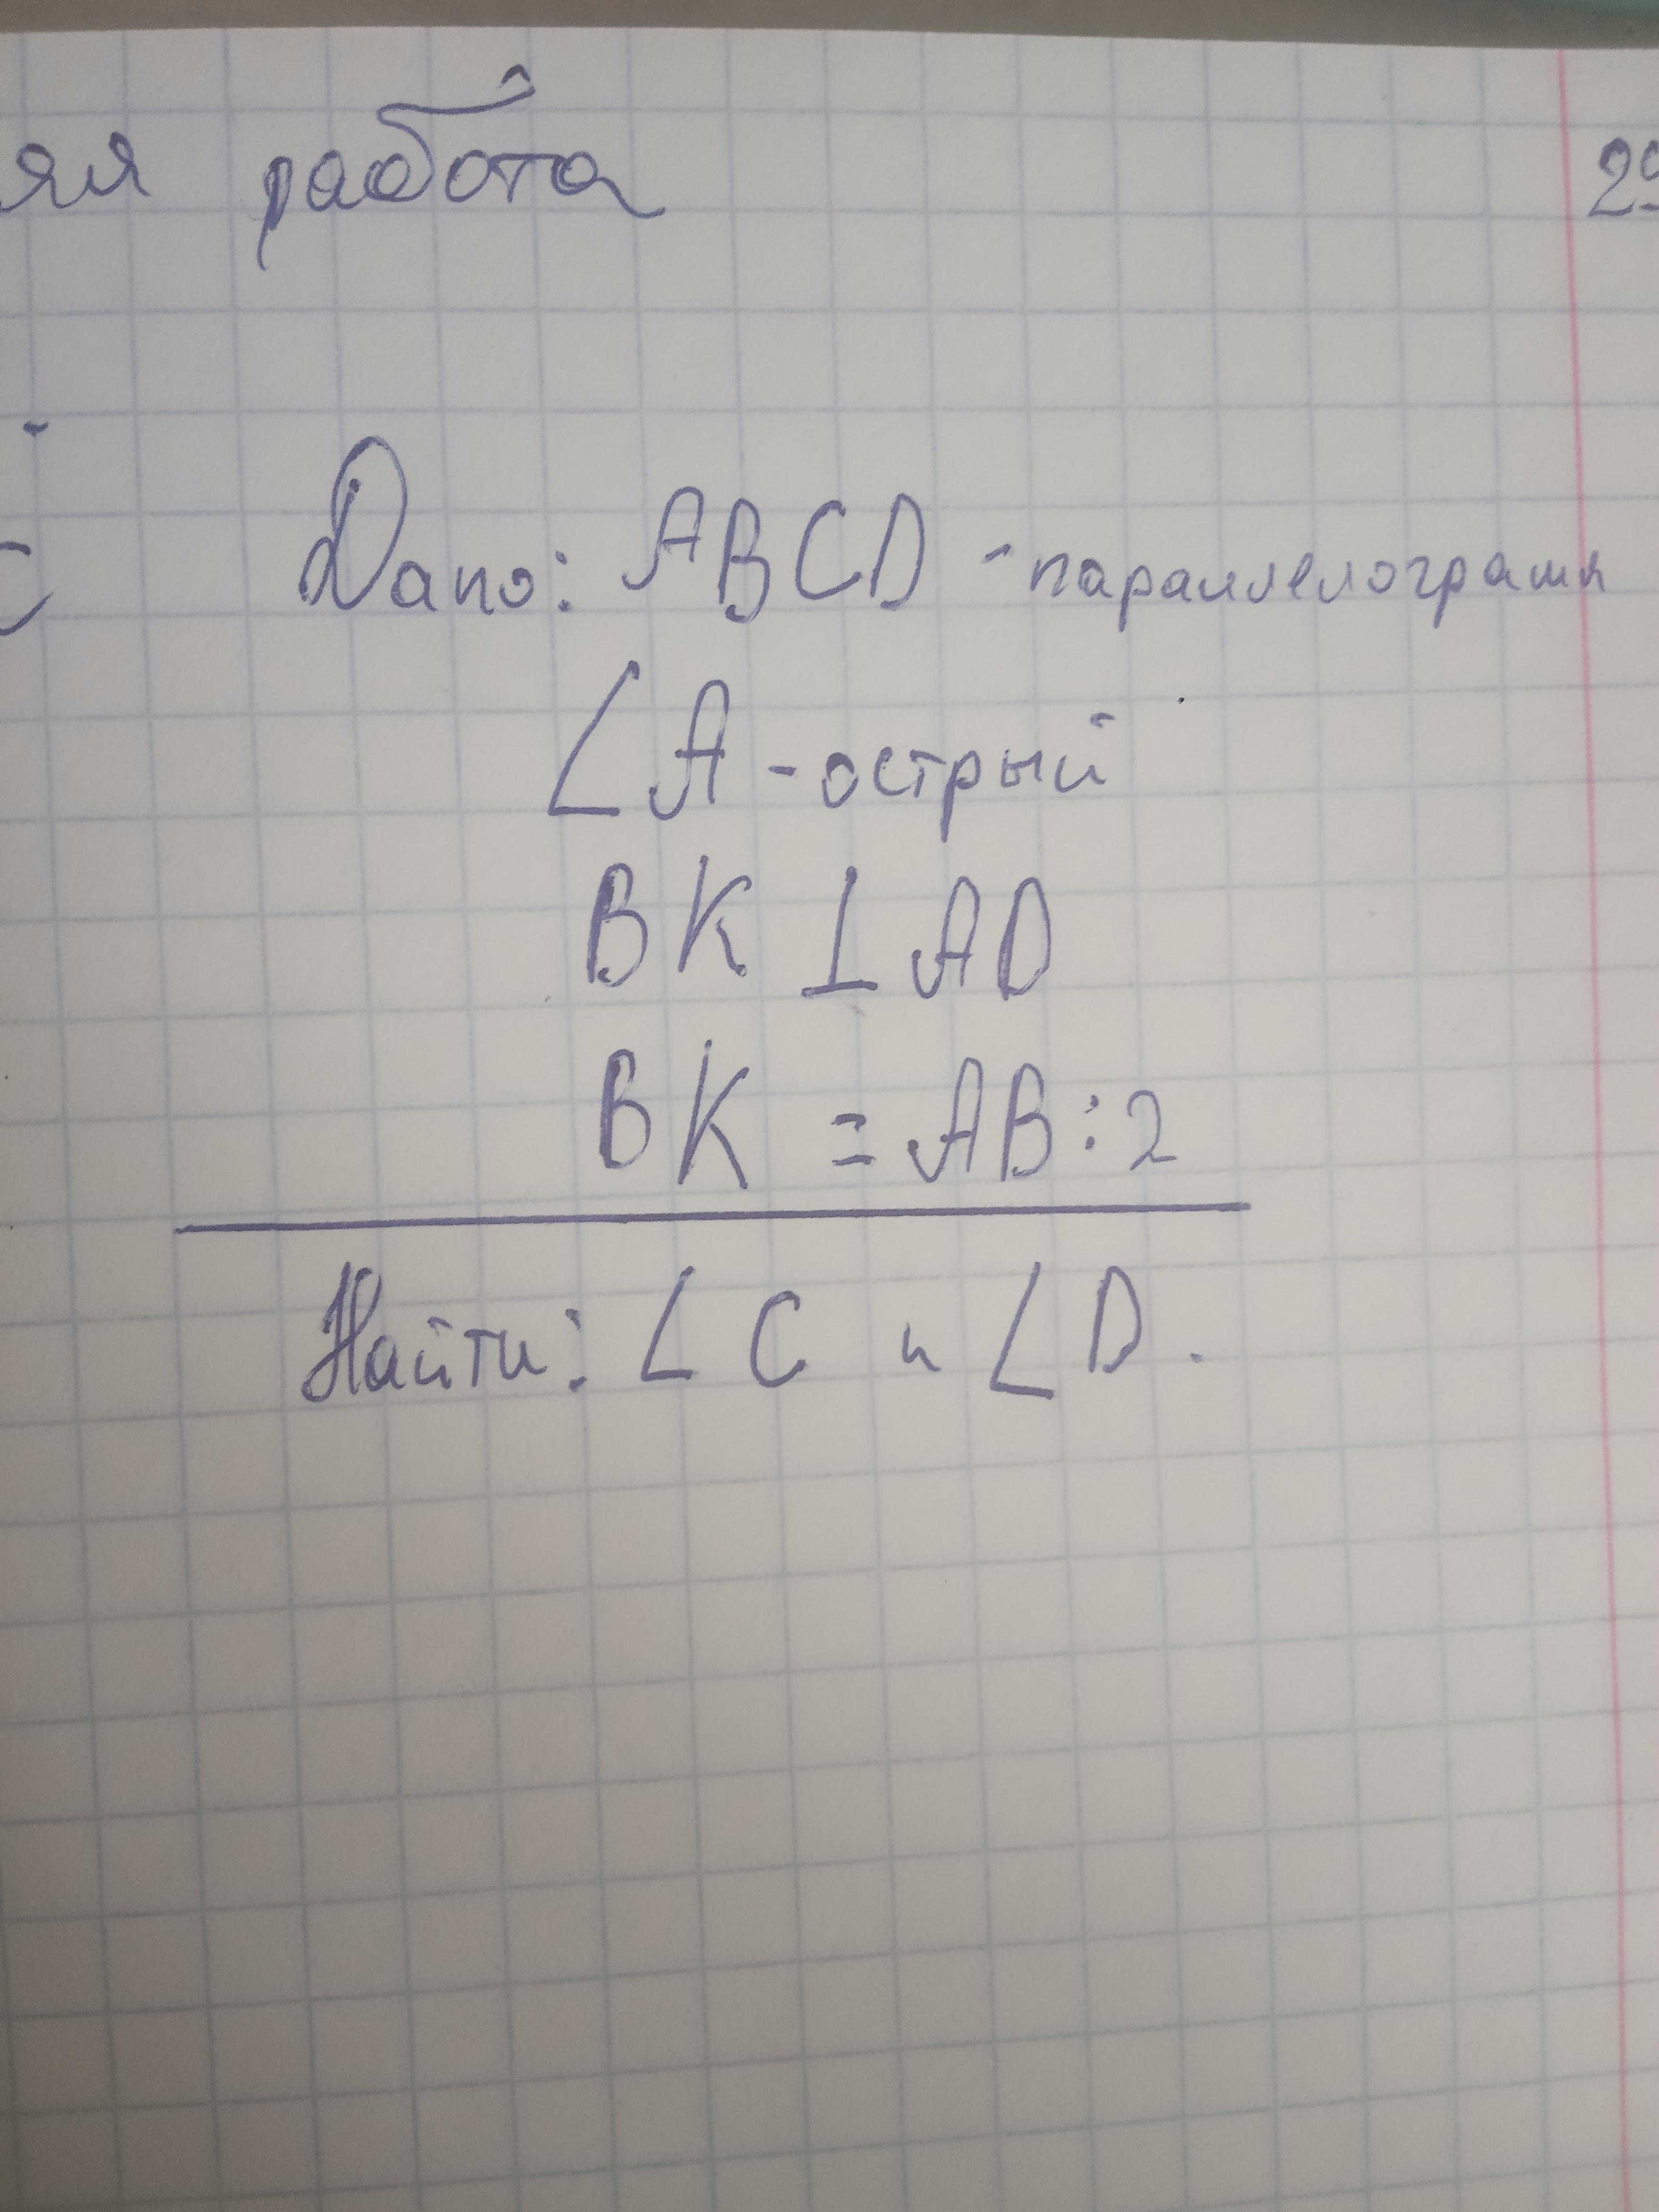 яя работа
29
С Дано: ABCD - параллелограмм
∠A - острый
BK ⊥ AD
BK = AB : 2
Найти: ∠C и ∠D.